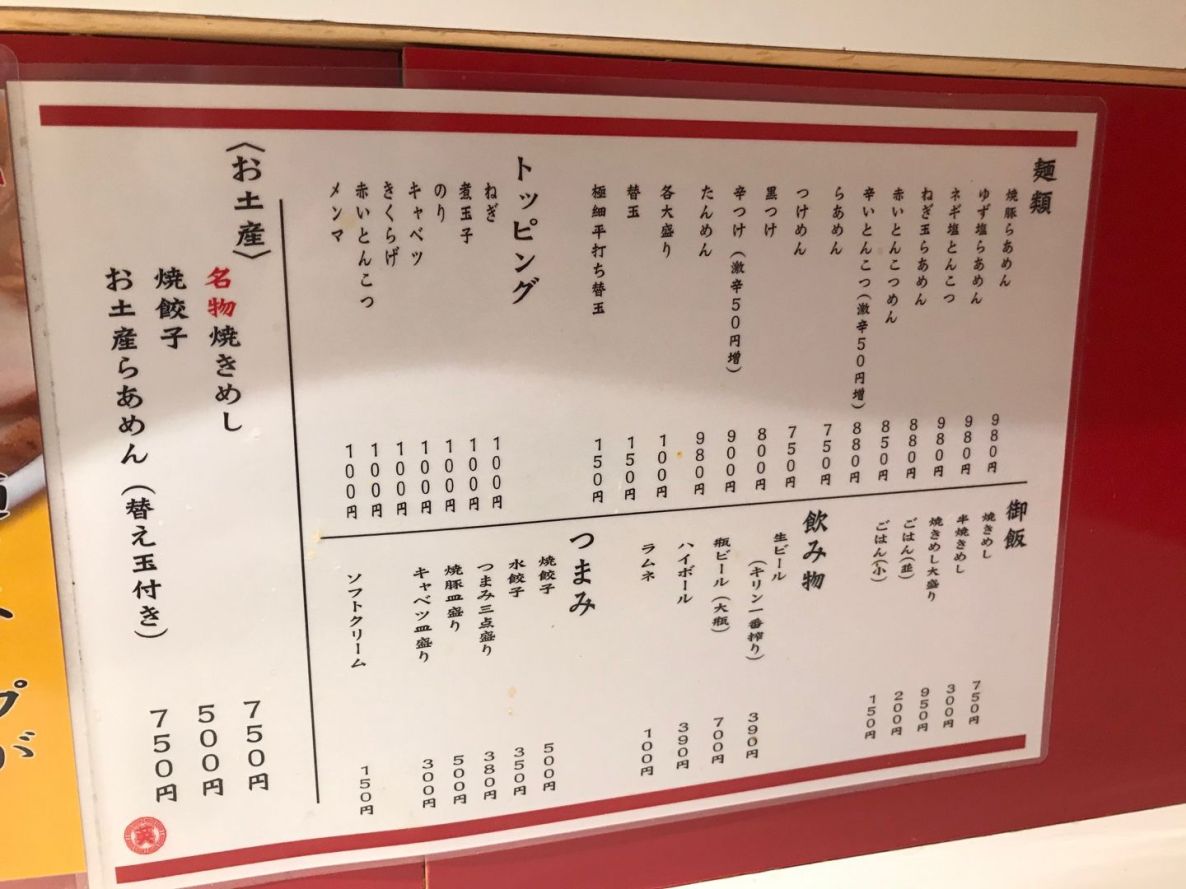 麺類
焼豚らあめん 980円
ゆず塩らあめん 980円
ネギ塩とんこつ 980円
ねぎ玉らあめん 880円
赤いとんこつめん 850円
辛いとんこつ(激辛50円増) 880円
らあめん 750円
つけめん 750円
黒つけ 800円
辛つけ(激辛50円増) 900円
たんめん 980円
各大盛り 100円
替玉 150円
極細平打ち替玉 150円
トッピング
ねぎ 100円
煮玉子 100円
のり 100円
キャベツ 100円
きくらげ 100円
赤いとんこつ 100円
メンマ 100円
御飯
焼きめし 750円
半焼きめし 300円
焼きめし大盛り 950円
ごはん(並) 200円
ごはん(小) 150円
飲み物
生ビール
(キリン一番搾り) 390円
瓶ビール(大瓶) 700円
ハイボール 390円
ラムネ 100円
つまみ
焼餃子 500円
水餃子 350円
つまみ三点盛り 380円
焼豚皿盛り 500円
キャベツ皿盛り 300円
ソフトクリーム 150円
〈お土産〉
名物焼きめし 750円
焼餃子 500円
お土産らあめん(替え玉付き) 750円